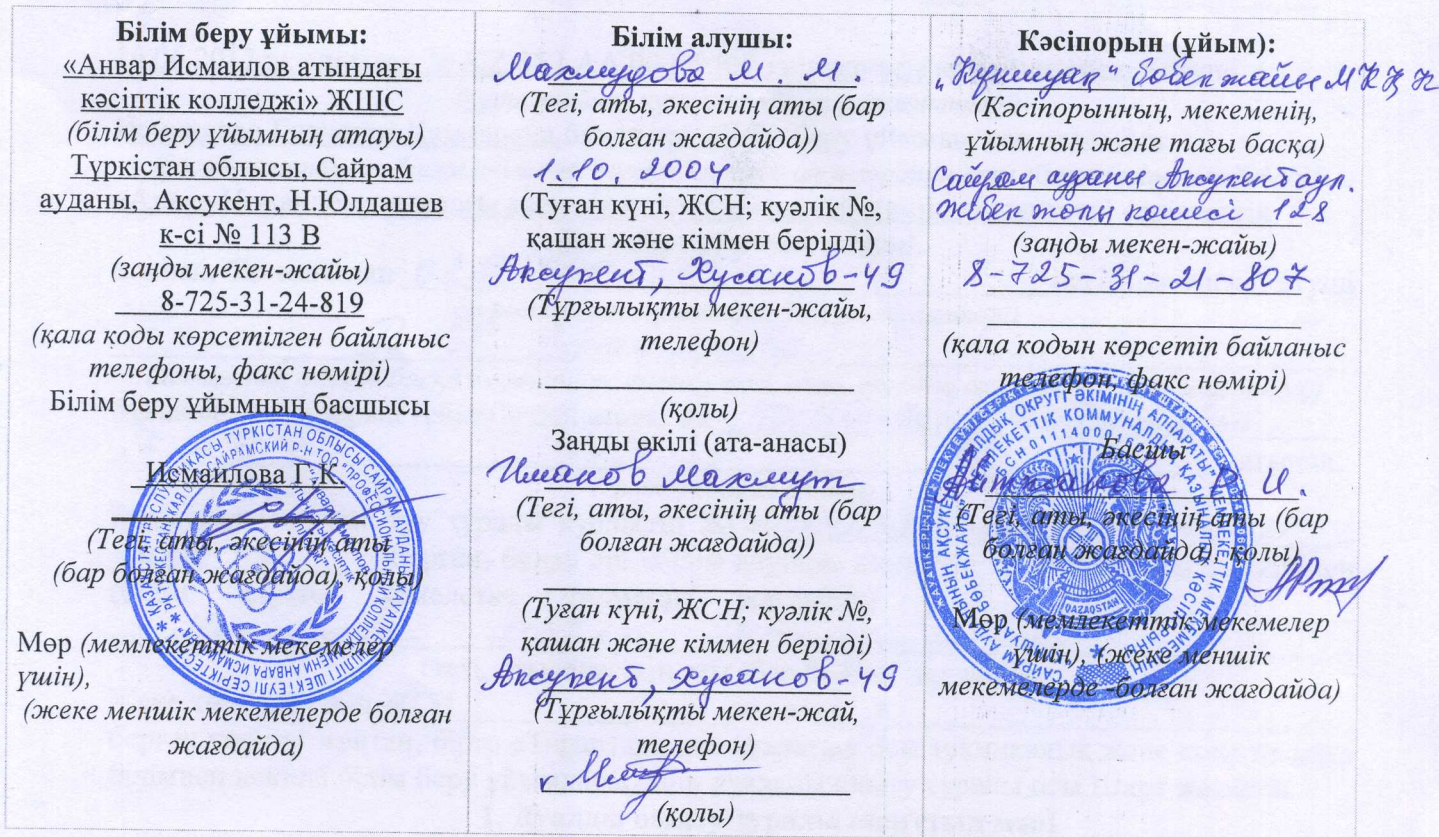 Білім беру ұйымы:
«Анвар Исмаилов атындағы
кәсіптік колледжі» ЖШС
(білім беру ұйымның атауы)
Түркістан облысы, Сайрам
ауданы, Аксукент, Н.Юлдашев
к-сі № 113 В
(заңды мекен-жайы)
8-725-31-24-819
(қала қоды көрсетілген байланыс
телефоны, факс нөмірі)
Білім беру ұйымның басшысы
Исмаилова Г.К.
(Тегі, аты, әкесінің аты
(бар болған жағдайда), қолы)
Мөр (мемлекеттік мекемелер
үшін),
(жеке меншік мекемелерде болған
жағдайда)
Білім алушы:
Махмудова М. М.
(Тегі, аты, әкесінің аты (бар
болған жағдайда))
1.10.2004
(Туған күні, ЖСН; куәлік №,
қашан және кіммен берілді)
Аксукент, Хусанов-49
(Тұрғылықты мекен-жайы,
телефон)
(қолы)
Заңды өкілі (ата-анасы)
Иманов Махмут
(Тегі, аты, әкесінің аты (бар
болған жағдайда))
(Туған күні, ЖСН; куәлік №,
қашан және кіммен берілді)
Аксукент, Хусанов-49
(Тұрғылықты мекен-жай,
телефон)
(қолы)
Кәсіпорын (ұйым):
"Күншуақ" бөбекжайы МКҚК
(Кәсіпорынның, мекеменің,
ұйымның және тағы басқа)
Сайрам ауданы Аксукент аул.
Жібек жолы көшесі 128
(заңды мекен-жайы)
8-725-31-21-807
(қала кодын көрсетіп байланыс
телефон, факс нөмірі)
Басшы
(Тегі, аты, әкесінің аты (бар
болған жағдайда), қолы)
Мөр (мемлекеттік мекемелер
үшін), (жеке меншік
мекемелерде -болған жағдайда)
QAZAQSTAN